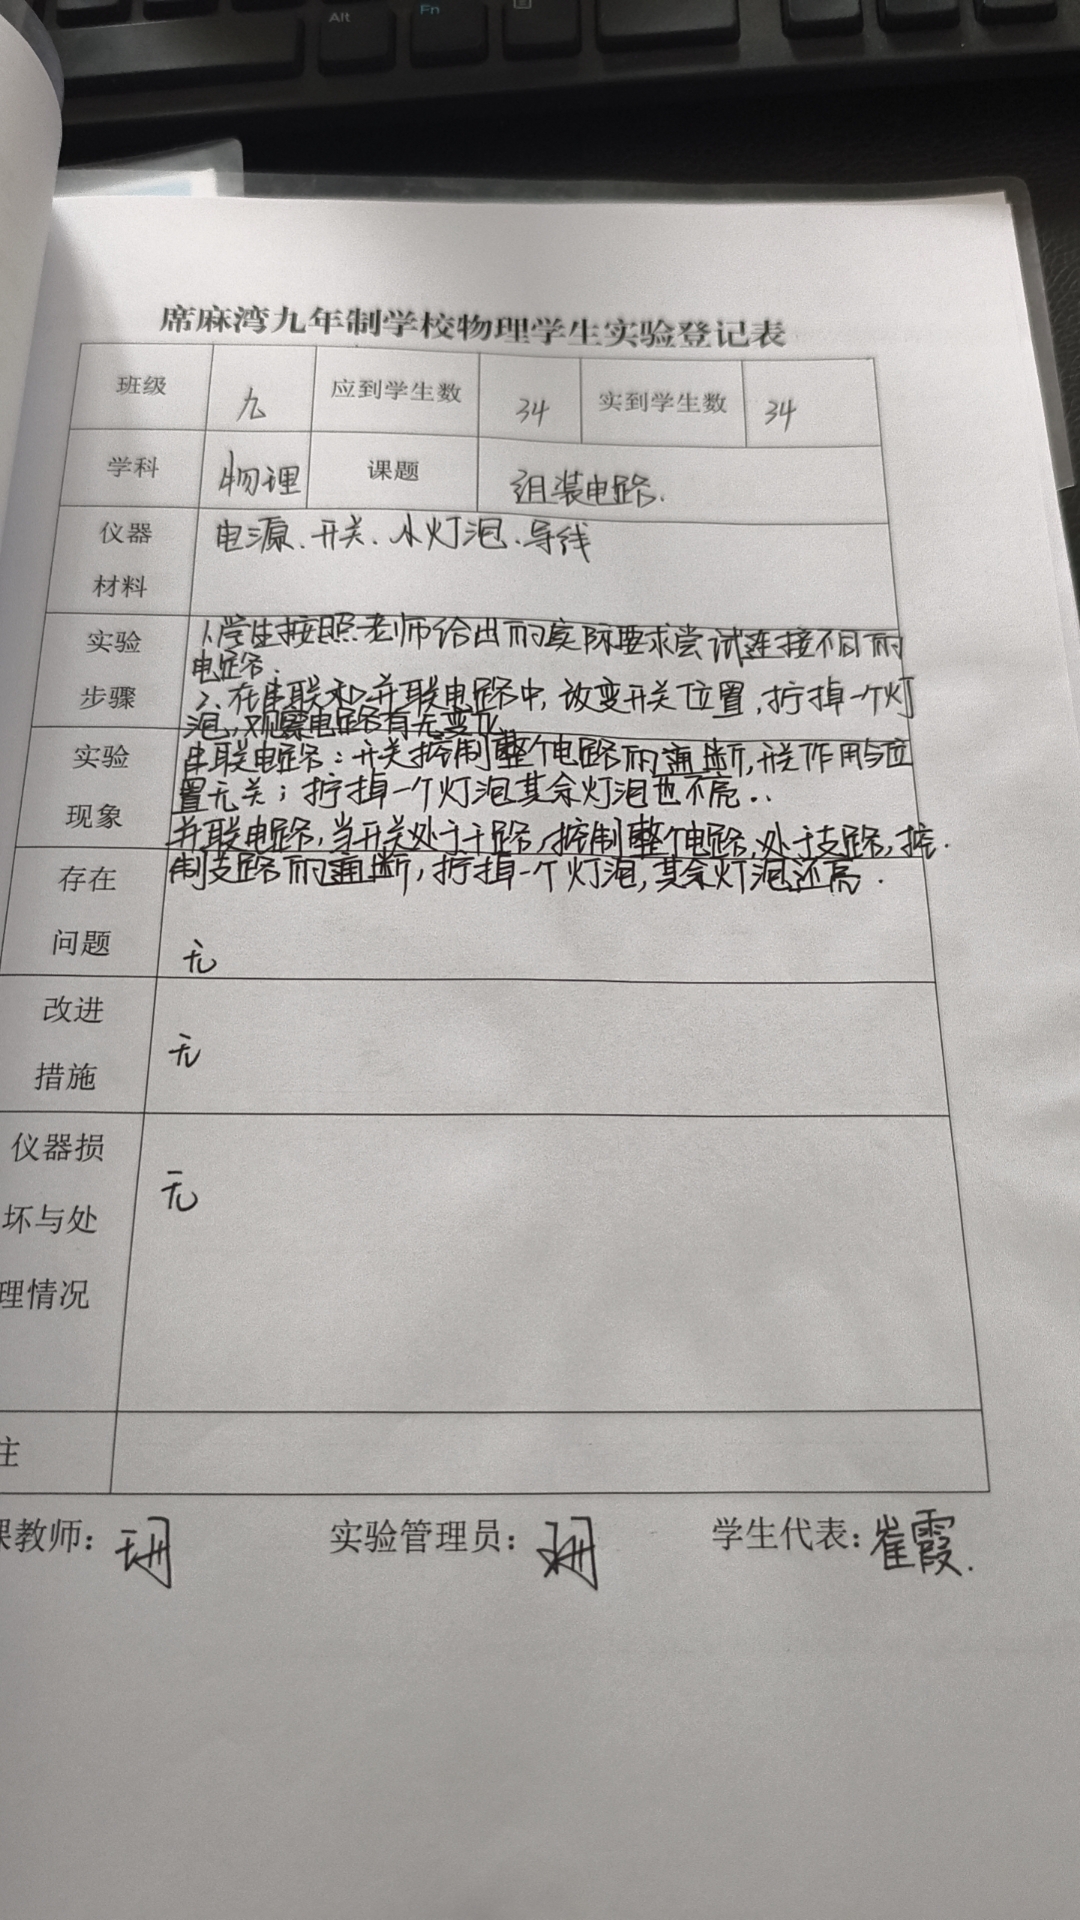 Alt
Fn
席麻湾九年制学校物理学生实验登记表
班级 九 应到学生数 34 实到学生数 34
学科 物理 课题 组装电路.
仪器 电源、开关、小灯泡、导线
材料
实验 1、学生按照老师给出的实际要求尝试连接不同的
电路.
步骤 2、在串联和并联电路中,改变开关位置,拧掉一个灯
泡,观察电路有无变化
实验 串联电路:开关控制整个电路的通断,开关作用与位
置无关;拧掉一个灯泡其余灯泡也不亮..
现象 并联电路,当开关处于干路,控制整个电路,处于支路,控.
存在 制支路的通断,拧掉一个灯泡,其余灯泡还亮.
问题 无
改进
无
措施
仪器损
无
坏与处
理情况
注
课教师: 实验管理员: 学生代表:崔霞.